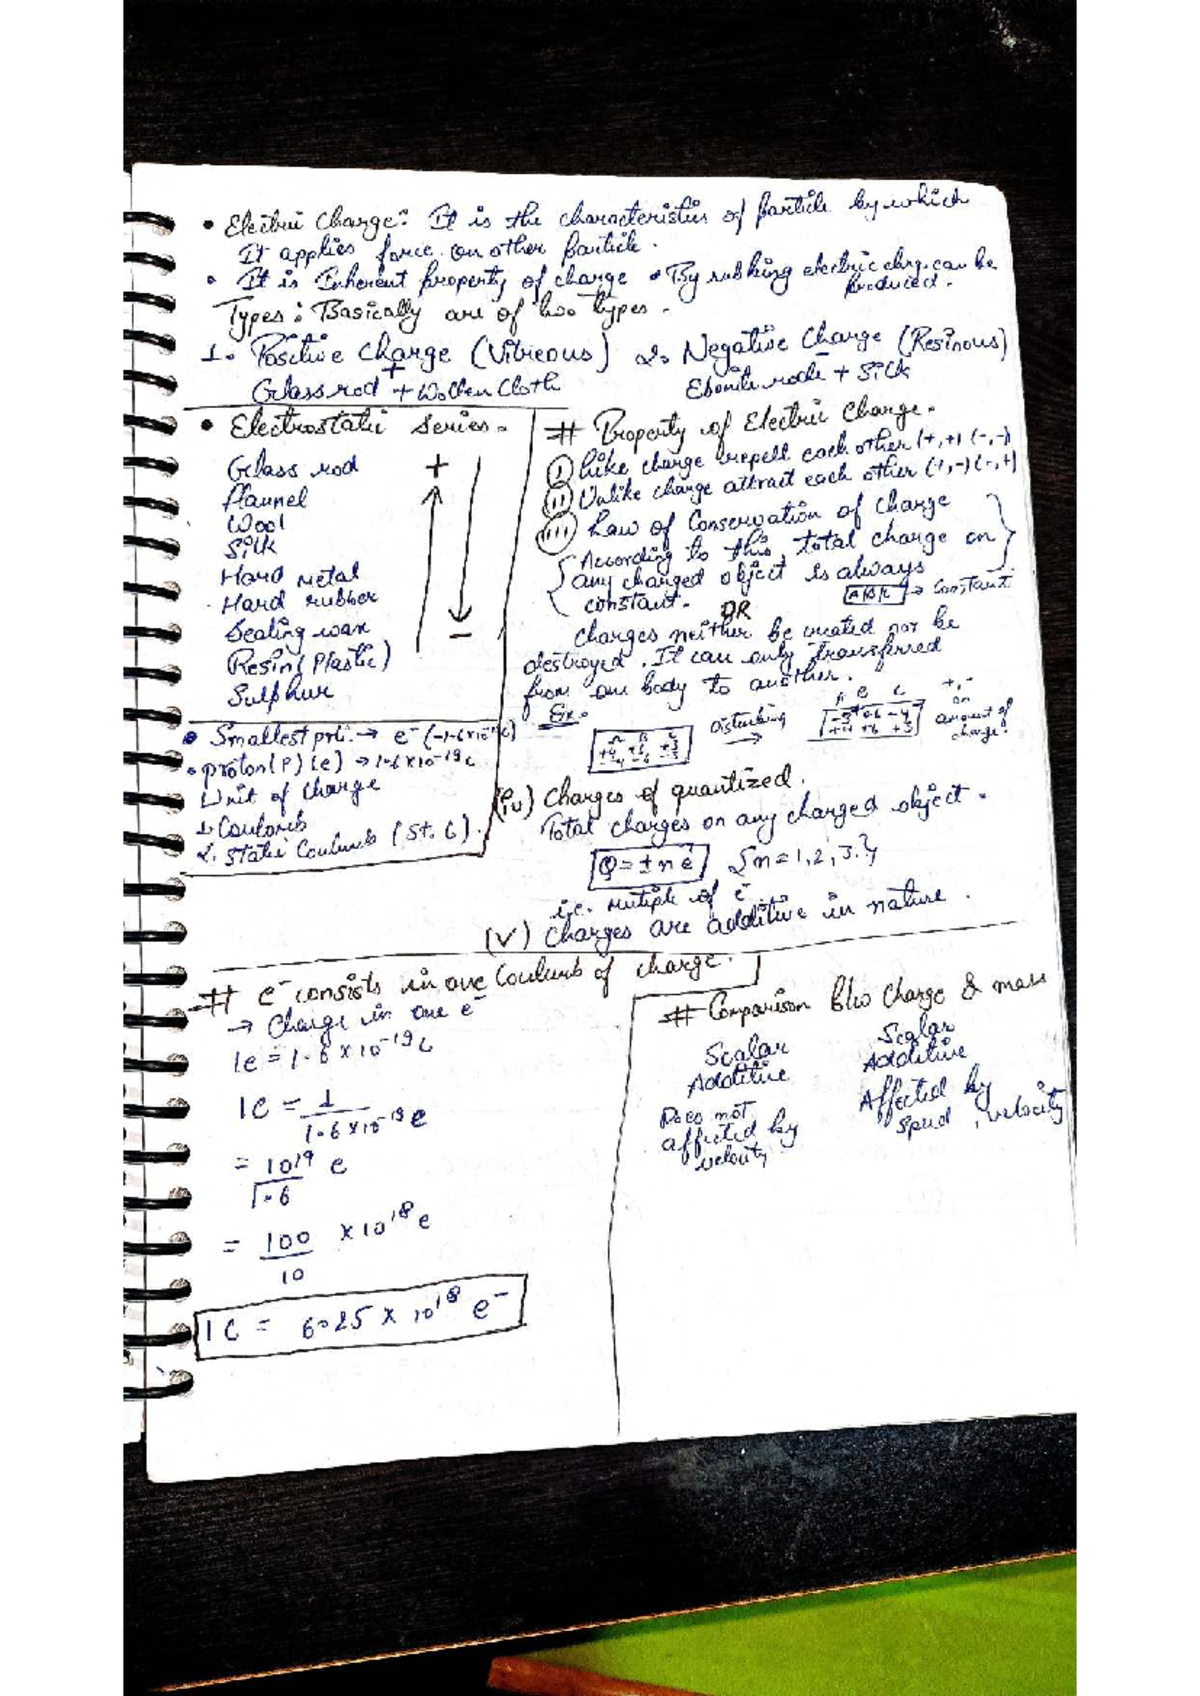 • Electric Charge: It is the characteristics of particle by which
It applies force on other particle.
• It is Inherent property of charge • By rubbing electric chrg. can be
produced.
Types: Basically are of two types.
1. Positive Charge (Vitreous)
+
Glass rod + Wollen Cloth
2. Negative Charge (Resinous)
Ebonite rode + Silk
• Electrostatic Series.
Glass rod +
flannel
Wool
Silk
Hard metal
Hard rubber
Sealing wax −
Resin (Plastic)
Sulphur
• Smallest prti. → e⁻ (-1.6×10⁻¹⁹C)
• proton(P) (e) → 1.6×10⁻¹⁹C
Unit of charge
1. Coulomb
2. Static Coulumb (St. C).
# Property of Electric Charge.
(I) Like charge repell each other (+,+) (-,-)
(II) Unlike charge attract each other (+,-) (-,+)
(III) Law of Conservation of charge
According to this, total charge on
any charged object is always
constant.
A|B|C → Constant
OR
charges neither be created nor be
destroyed. It can only transferred
from one body to another.
Ex.
A B C
Disturbing
→
A B C
+,-
amount of
charge!
(iv) Charges of quantized.
Total charges on any charged object.
Q = ± n e {n = 1, 2, 3..}
i.e. mutiple of e⁻
(V) Charges are additive in nature.
# e⁻ consists in one Coulumb of charge.
→ Charge in one e⁻
1e = 1.6 × 10⁻¹⁹C
1C = 1/1.6×10⁻¹⁹ e
= 10¹⁹/1.6 e
= 100/10 × 10¹⁸ e
1C = 6.25 × 10¹⁸ e⁻
# Comparison b/w Charge & mass
Scalar Scalar
Additive Additive
Does not
affected by
velocity
Affected by
speed, velocity